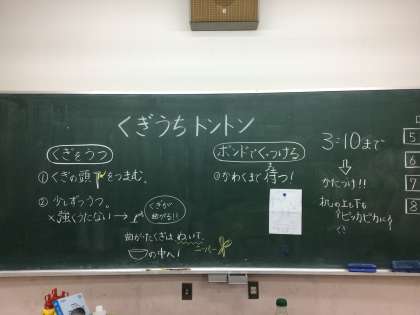 くぎうちトントン
くぎをうつ
①くぎの頭をつまむ。
②少しずつうつ。
×強くうたない→
くぎが
曲がる!!
曲がたくぎは ぬいて、
の中へ!
ニッパー
ボンドでくっつける
①かわくまで待つ!
3:10まで
かたづけ!!
机の上も下も
ピッカピカに
5
6
7
8